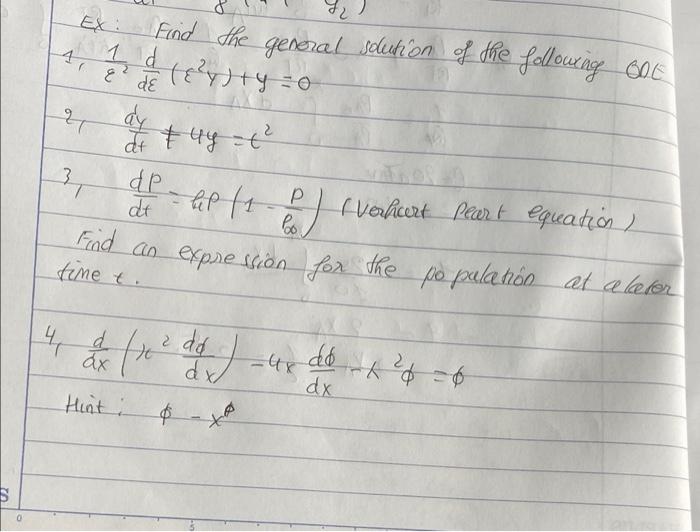 y₂)
Ex: Find the general solution of the following ODE
1, 1/ε² d/dε (ε²y) + y = 0
2, dy/dt + 4y = t²
3, dP/dt = kP (1 - P/P∞) (Verhcurt Pearl equation)
Find an expression for the population at a later
time t.
4, d/dx (x² dϕ/dx) - 4x dϕ/dx - x²ϕ = ϕ
Hint: ϕ - x^ϕ
S
0
5